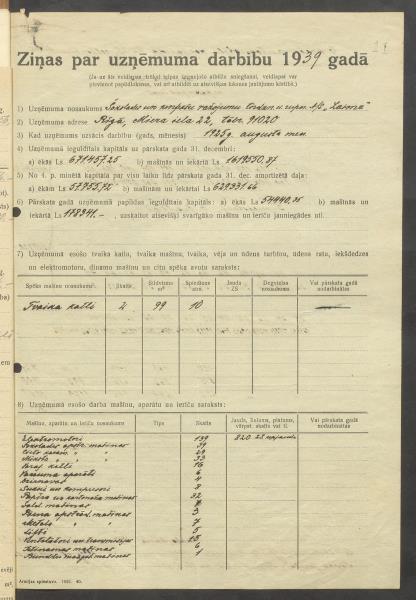 Ziņas par uzņēmuma darbību 1939 gadā
(Ja uz šīs veidlapas trūkst telpas izsmeļošu atbilžu sniegšanai, veidlapai var
pievienot papildloksnes, vai arī atbildēt uz atsevišķas loksnes jautājumu kārtībā.)
1) Uzņēmuma nosaukums Šokolades un konfekšu ražojumu
2) Uzņēmuma adrese Rīgā, Miera ielā 22, tālr. 91020
3) Kad uzņēmums uzsācis darbību (gads, mēnesis) 1925g. augusta mēn.
4) Uzņēmumā ieguldītais kapitāls uz pārskata gada 31. decembri:
a) ēkās Ls 671457.25 b) mašīnās un iekārtā Ls 1619550.87
5) No 4. p. minētā kapitāla par visu laiku līdz pārskata gada 31. dec. amortizētā daļa:
a) ēkām Ls 57955,72 b) mašīnām un iekārtai Ls 629391.66
6) Pārskata gadā uzņēmumā papildus ieguldītais kapitāls: a) ēkās Ls 54440,35 b) mašīnās un
iekārtā Ls 178941.—, uzskaitot atsevišķi svarīgāko mašīnu un ierīču jauniegādes utt.
7) Uzņēmumā esošo tvaika katlu, tvaika mašīnu, tvaika, vēja un ūdens turbīnu, ūdens ratu, iekšdedzes
un elektromotoru, dinamo mašīnu un citu spēka avotu saraksts:
Spēka mašīnu nosaukums Skaits Sildvirsma m² Spiediens atm. Jauda ZS Degvielas nosaukums Vai pārskata gadā nodarbinātas
Tvaika katli 2 99 10 —
8) Uzņēmumā esošo darba mašīnu, aparātu un ierīču saraksts:
Mašīnu, aparātu un ierīču nosaukums Tips Skaits Jauda, lielums, platums, vārpst. skaits vai tl. Vai pārskata gadā nodarbinātas
Elektromotori 139 820
Šokolādes apstr. mašīnas 39
29
33
katli 16
aparāti 6
4
un kompresori 8
Papīra un kartonāža mašīnas 32
mašīnas
apstrād. mašīnas 3
7
Lifti 5
Ventilatori un transmisijas 28
mašīnas 6
mašīnas 1
Armijas spiestuve. 1939. 40.